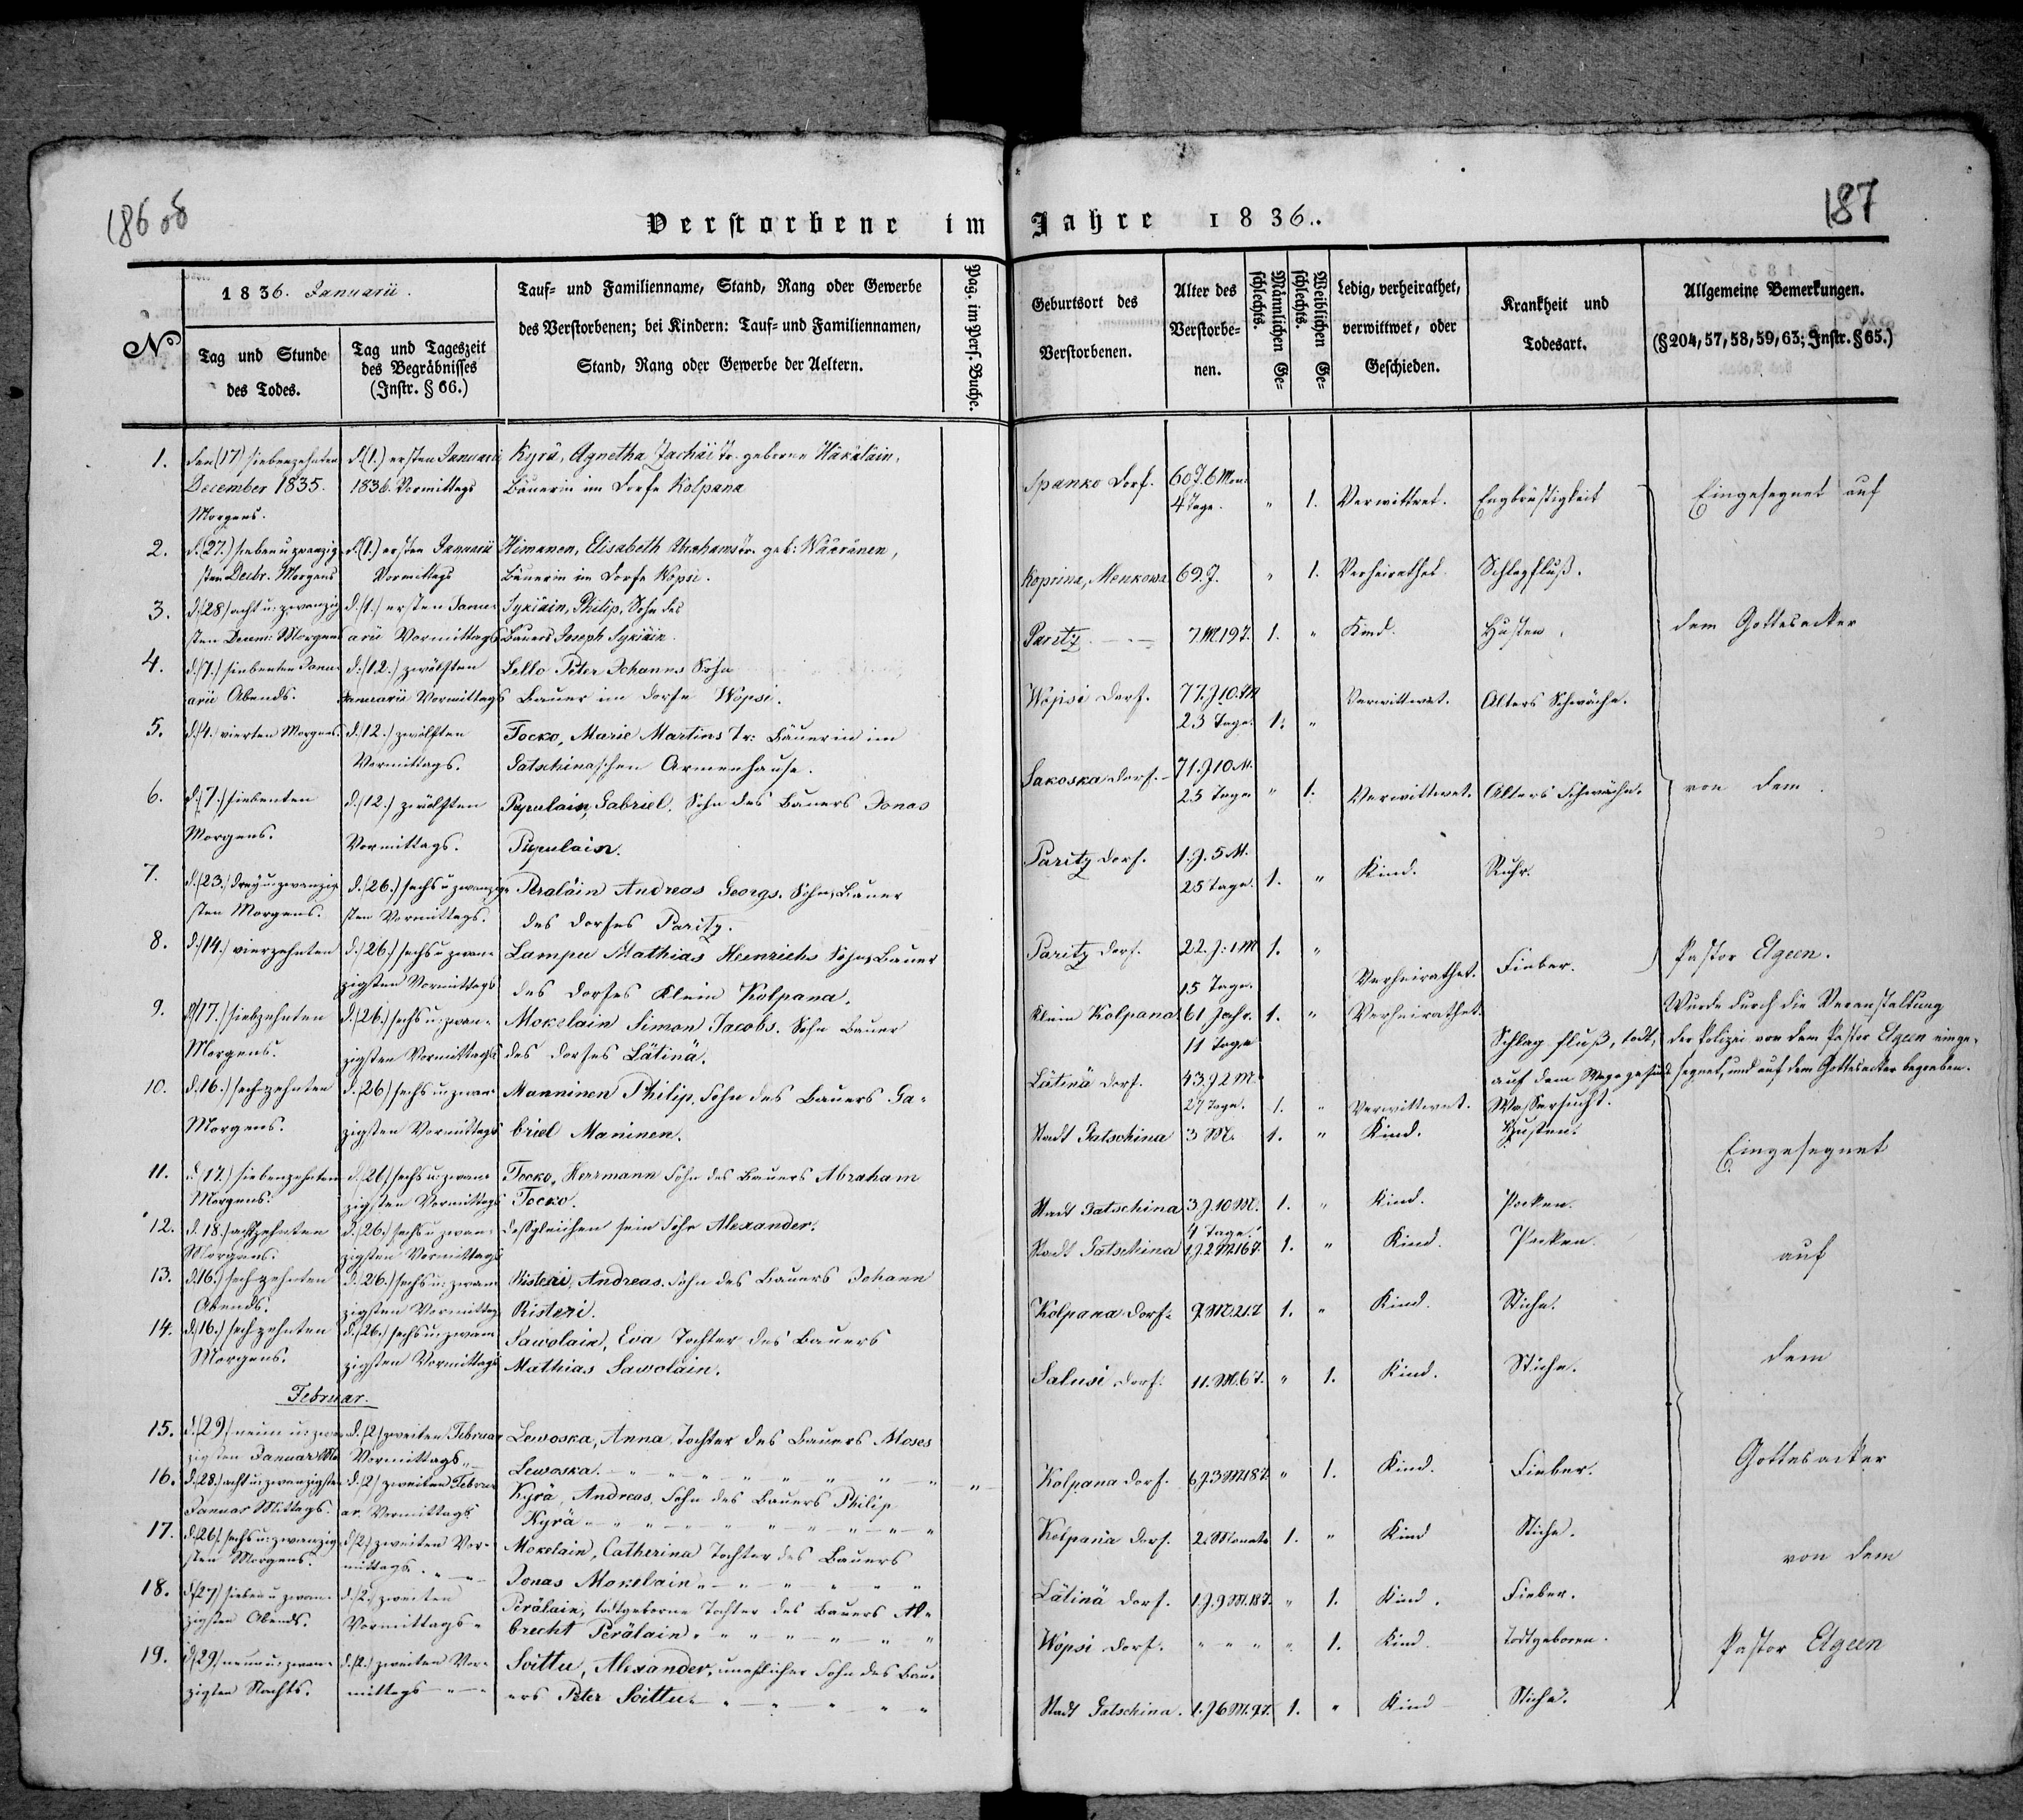 186 об
187
Verstorbene im Jahre 1836.
N°
1836. Januarii.
Tag und Stunde
des Todes.
Tag und Tageszeit
des Begräbnisses
(Instr. § 66.)
Tauf- und Familienname, Stand, Rang oder Gewerbe
des Verstorbenen; bei Kindern: Tauf- und Familiennamen,
Stand, Rang oder Gewerbe der Aeltern.
Pag. im Pers.-Buche.
Geburtsort des
Verstorbenen.
Alter des
Verstorbe-
nen.
Männlichen Ge-
schlechts.
Weiblichen Ge-
schlechts.
Ledig, verheirathet,
verwittwet, oder
Geschieden.
Krankheit und
Todesart.
Allgemeine Bemerkungen.
(§ 204, 57, 58, 59, 63; Instr. § 65.)
1.
den (17) siebenzehnten
December 1835.
Morgens.
d. (1.) ersten Januarii
1836. Vormittags
Kyrä, Agnetha Zachäi Tr. geborne Häkäläin,
Bäuerin im Dorfe Kolpana
Spanko Dorf.
60 J. 6 Mon.
4 Tage.
" 1.
Verwittwet.
Engbrüstigkeit
Eingesegnet auf
2.
d. (27.) sieben u zwanzig
sten Decbr. Morgens
d. (1.) ersten Januarii
Vormittags
Himanen, Elisabeth Abrahams Tr. geb: Wäöränen,
Bäuerin im Dorfe Wopsi.
Koprina, Menkowa
69. J.
" 1.
Verheirathet
Schlagfluß.
3.
d. (28) acht u: zwanzig
sten Decem: Morgens
d. (1.) ersten Janu-
arii Vormittags
Sykiäin, Philip, Sohn des
Bauers Joseph Sykiäin.
Paritz
7 M 19 T.
1. "
Kind.
Husten.
dem Gottesacker
4.
d. (7.) siebenten Janu-
arii Abends.
d. (12.) zwölften
Januarii Vormittags
Lello Peter Johanns Sohn
Bauer im Dorfe Wopsi.
Wopsi Dorf.
77. J 10. M
23 Tage.
1. "
Verwittwet.
Alters Schwäche.
5.
d. (4.) vierten Morgens.
d. (12.) zwölften
Vormittags.
Tocko, Marie Martins Tr: Bäuerin im
Gatschinaschen Armenhause.
Sakoska Dorf.
71. J 10 M.
25 Tage
" 1.
Verwittwet.
Alters Schwäche.
von dem
6.
d. (7.) siebenten
Morgens.
d. (12.) zwölften
Vormittags.
Pupulain, Gabriel, Sohn des Bauers Jonas
Pupulain.
Paritz Dorf.
1. J. 5 M.
25 Tage.
1. "
Kind.
Ruhr.
7.
d. (23.) drey u: zwanzig
sten Morgens.
d. (26.) sechs u zwanzig
sten Vormittags.
Peraläin Andreas Georgs. Sohn, Bauer
des Dorfes Paritz.
Paritz Dorf.
22. J: 1 M
15 Tage.
1. "
Verheirathet.
Fieber.
Pastor Elgeen.
8.
d. (14.) vierzehnten
d. (26.) sechs u zwan-
zigsten Vormittags
Lampu Mathias Heinrichs Sohn, Bauer
des Dorfes Klein Kolpana.
Klein Kolpana
61 Jahr.
11 Tage
1. "
Verheirathet.
Schlag fluß, todt,
auf dem Wege gefund
Wurde durch die Veranstaltung
der Polizei von dem Pastor Elgeen einge-
segnet, und auf dem Gottesacker begraben.
9.
d (17.) siebzehnten
Morgens.
d. (26.) sechs u: zwan-
zigsten Vormittags
Mokelain Simon Jacobs. Sohn Bauer
des Dorfes Lätinä.
Lätinä Dorf.
43. J 2 M.
27 Tage.
1. "
Verwittwet.
Wassersucht.
10.
d. 16.) sechzehnten
Morgens.
d. (26) sechs u: zwan-
zigsten Vormittags
Manninen Philip. Sohn des Bauers Ga-
briel Maninen.
Stadt Gatschina
3 M.
1. "
Kind.
Husten.
Eingesegnet
11.
d. (17.) siebenzehnten
Morgens.
d. (26) sechs u: zwan-
zigsten Vormittags
Tocko, Herrmann Sohn des Bauers Abraham
Tocko.
Stadt Gatschina
3 J. 10 M.
4 Tage.
1. "
Kind.
Pocken.
12.
d. 18.) achtzehnten
Morgens.
d. (26.) sechs u zwan-
zigsten Vormittags
desgleichen sein Sohn Alexander.
Stadt Gatschina
1 J. 2 M 16 T.
1. "
Kind.
Pocken.
auf
13.
d. 16.) sechzehnten
Abends.
d. 26.) sechs u: zwan
zigsten Vormittag
Risteri, Andreas. Sohn des Bauers Johann
Risteri.
Kolpana Dorf.
9. M. 21. T
1. "
Kind.
Stiche.
14.
d. 16.) sechzehnten
Morgens.
d. (26.) sechs u: zwan
zigsten Vormittags
Sawolain, Eva Tochter des Bauers
Mathias Sawolain.
Salusi Dorf.
11. M. 6 T.
" 1.
Kind.
Stiche.
dem
Februar.
15.
d. (29) neun u: zwan
zigsten Januar
d. (2) zweiten Februar
Vormittags
Lewoska, Anna, Tochter des Bauers Moses
Lewoska.
Kolpana Dorf.
6 J. 3 M 18 T.
" 1.
Kind.
Fieber.
Gottesacker
16.
d. (28.) acht u: zwanzigsten
Januar Mittags.
d. (2) zweiten Febru-
ar. Vormittags
Kyrä, Andreas, Sohn des Bauers Philip
Kyrä
Kolpana Dorf.
2. Monate
1. "
Kind
Stiche.
17.
d. (26). sechs u: zwanzig
sten Morgens.
d. (2) zweiten Vor-
mittags.
Mokelain, Catherina Tochter des Bauers
Jonas Mokelain
Lätinä Dorf.
1. J. 9 M. 18 T.
" 1.
Kind.
Fieber.
von dem
18.
d (27) sieben u zwan-
zigsten Abends.
d. (2.) zweiten
Vormittags
Perälain, todtgeborne Tochter des Bauers Al-
brecht Perälain
Wopsi Dorf.
" 1.
Kind.
Todtgeboren.
Pastor Elgeen
19.
d (29) neun u: zwan-
zigsten Nachts.
d. (2.) zweiten Vor-
mittags
Soittu, Alexander, unehlicher Sohn des Bau-
ers Peter Soittu.
Stadt Gatschina.
1. J 6 M. 9 T.
1. "
Kind
Stiche.